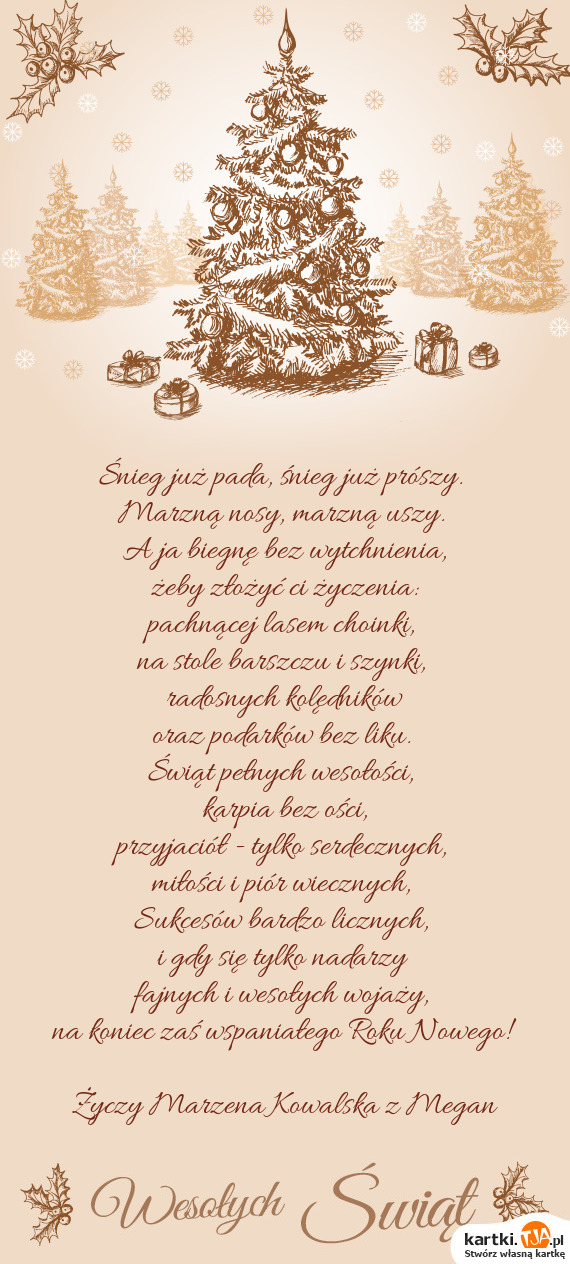 Śnieg już pada, śnieg już prószy.
Marzną nosy, marzną uszy.
A ja biegnę bez wytchnienia,
żeby złożyć ci życzenia:
pachnącej lasem choinki,
na stole barszczu i szynki,
radosnych kolędników
oraz podarków bez liku.
Świąt pełnych wesołości,
karpia bez ości,
przyjaciół - tylko serdecznych,
miłości i piór wiecznych,
Sukcesów bardzo licznych,
i gdy się tylko nadarzy
fajnych i wesołych wojaży,
na koniec zaś wspaniałego Roku Nowego!
Życzy Marzena Kowalska z Megan
Wesołych Świąt
kartki.TJA.pl
Stwórz własną kartkę